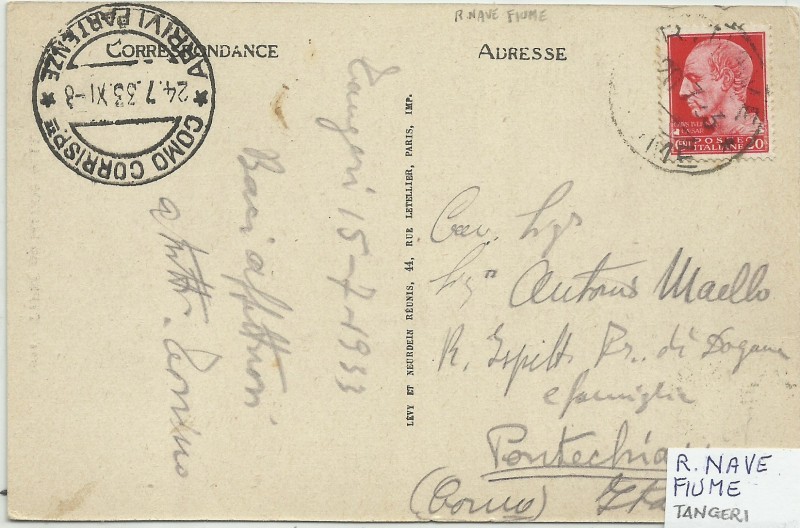 R. NAVE FIUME
CORRESPONDANCE
ADRESSE
COMO CORRISP.ZE
ARRIVI PARTENZE
24.7.33.XI-8
POSTE
ITALIANE
Tangeri 15-7-1933
Baci affettuosi
a tutti
LÉVY ET NEURDEIN RÉUNIS, 44, RUE LETELLIER, PARIS, IMP.
Cav.
Antonio Maello
R. di Dogana
e famiglia
(Como)
R. NAVE
FIUME
TANGERI